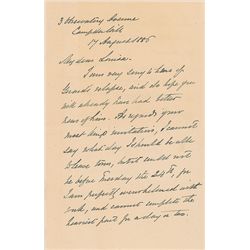 3 Observatory Avenue
Campden Hill
17 August 1886
My dear Louisa.
I am very sorry to hear of
Grant's relapse, and do hope you
will already have had better
news of him. As regards your
most kind invitation, I cannot
say what day I should be able
to leave town, but it could not
be before Tuesday the 24th, for
I am perfectly overwhelmed with
work, and cannot complete the
heaviest part for a day or two.